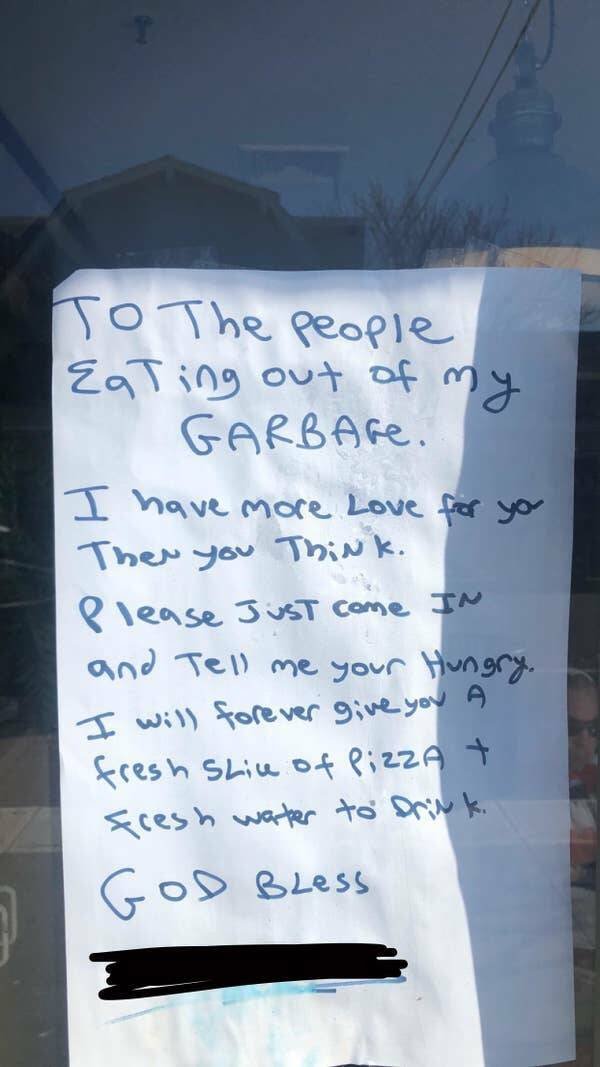 TO The people
EaTing out of my
GARBAGe.
I have more Love for you
Then you ThiNk.
Please JUST come IN
and Tell me your Hungry.
I will forever give you A
fresh SLice of PizzA +
fresh water to DriNk.
GOD BLess